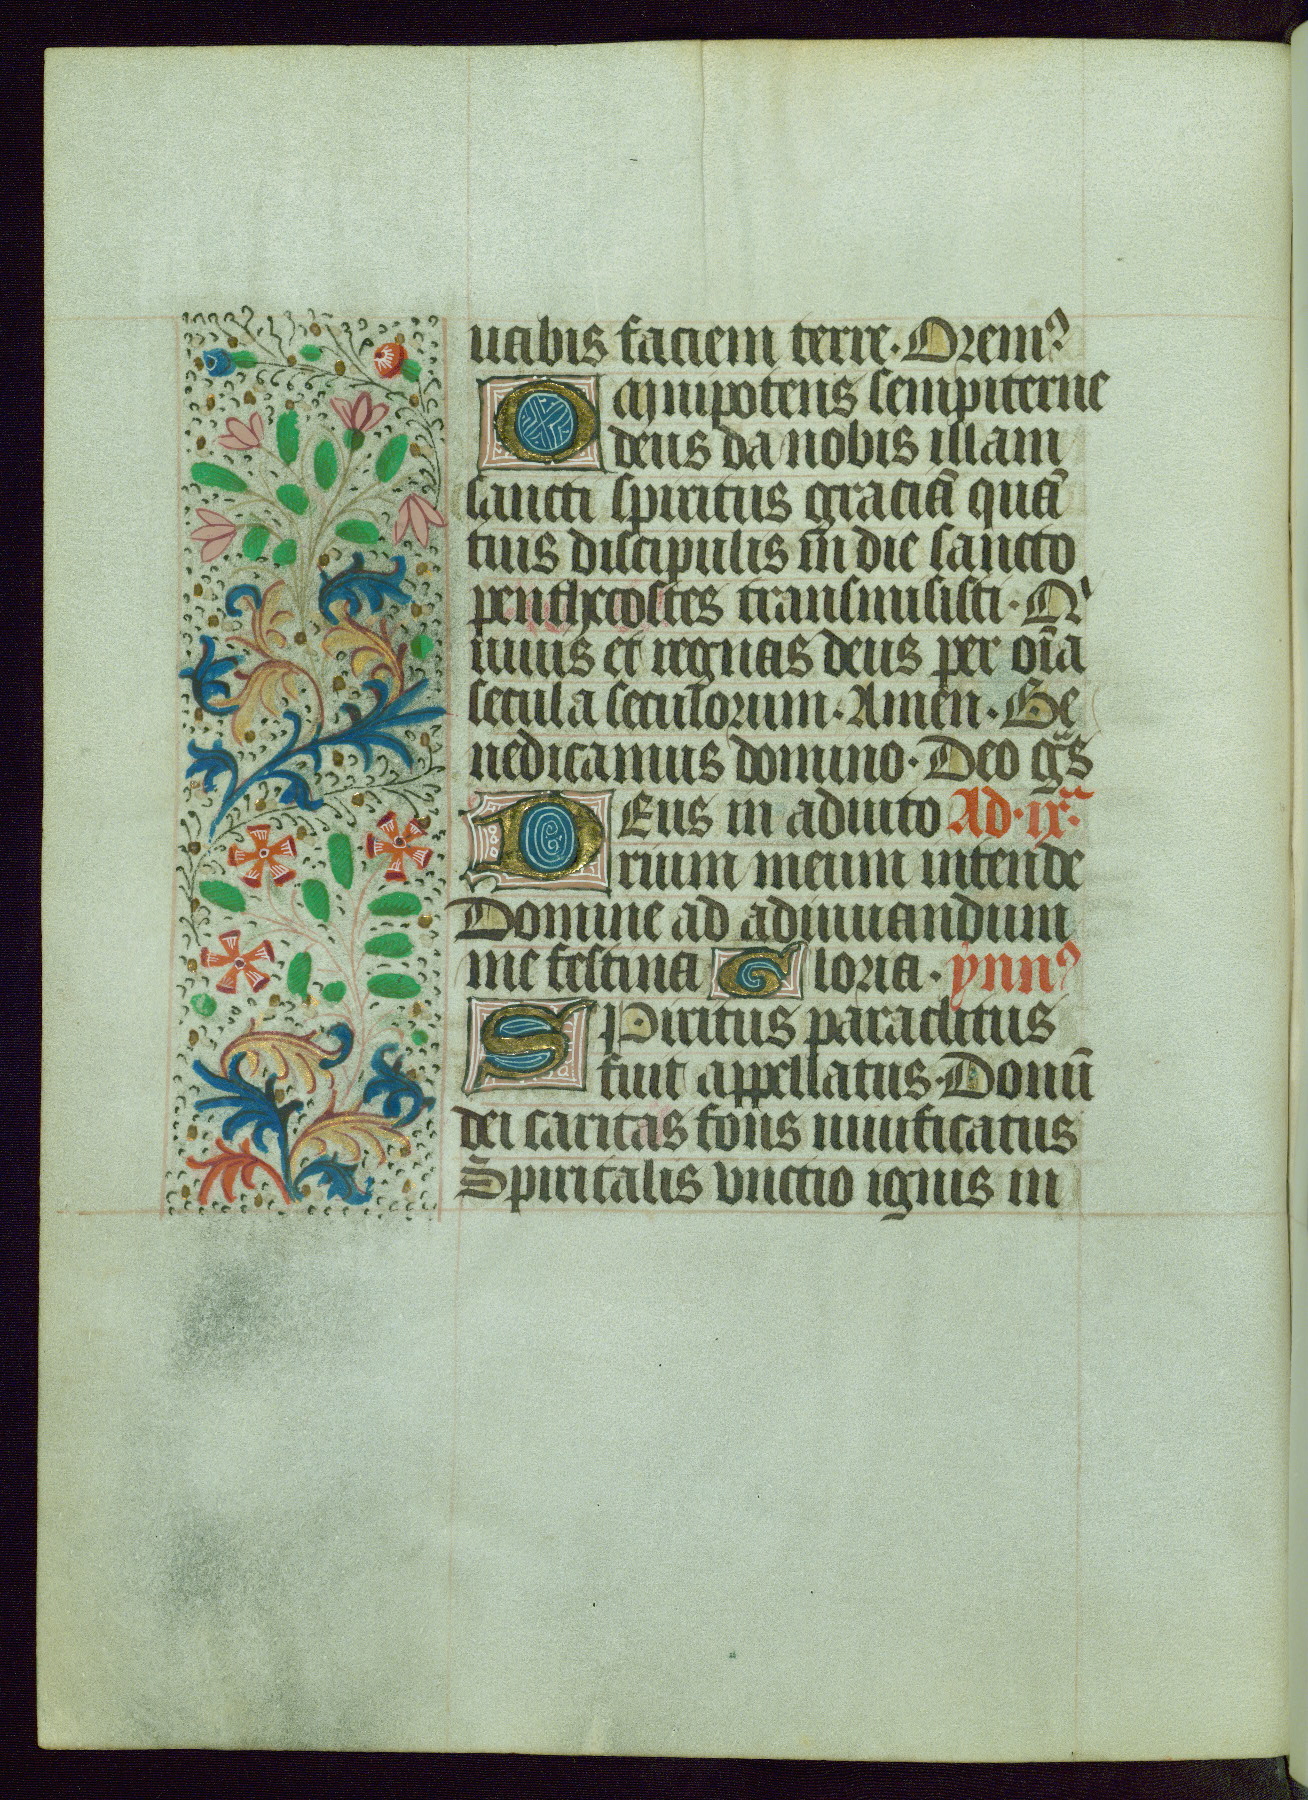 uabis faciem terre. Orem⁹
Omnipotens sempiterne
deus da nobis illam
sancti spiritus graciā quā
tuis discipulis in die sancto
penthecostes transmisisti. Qͥ
uiuis et regnas deus per oīa
secula seculorum. Amen. Be
nedicamus domino. Deo gͣs
DEus in adiuto Ad. ixͣ.
rium meum intende
Domine ad adiuuandum
me festina Gloria. ynn⁹
SPiritus paraclitus
fuit appellatus. Donū
dei caritas fons uiuificatus
Spiritalis vnctio ignis in